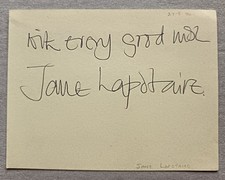 with every good wish
Jane Lapotaire.
Jane Lapotaire